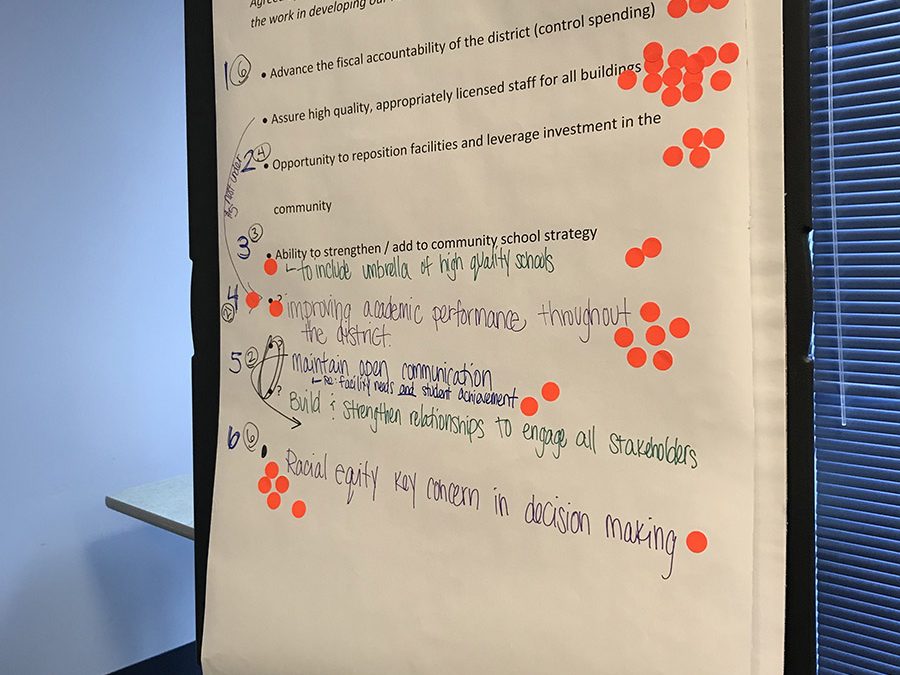 Agree
the work in developing our
1 6 • Advance the fiscal accountability of the district (control spending)
• Assure high quality, appropriately licensed staff for all buildings
2 4 • Opportunity to reposition facilities and leverage investment in the
community
3 3 • Ability to strengthen / add to community school strategy
to include umbrella of high quality schools
4 • ? improving academic performance throughout
the district.
5 2 • ? Maintain open communication
re: facility needs and student achievement
• ? Build & strengthen relationships to engage all stakeholders
6 6 • Racial equity key concern in decision making